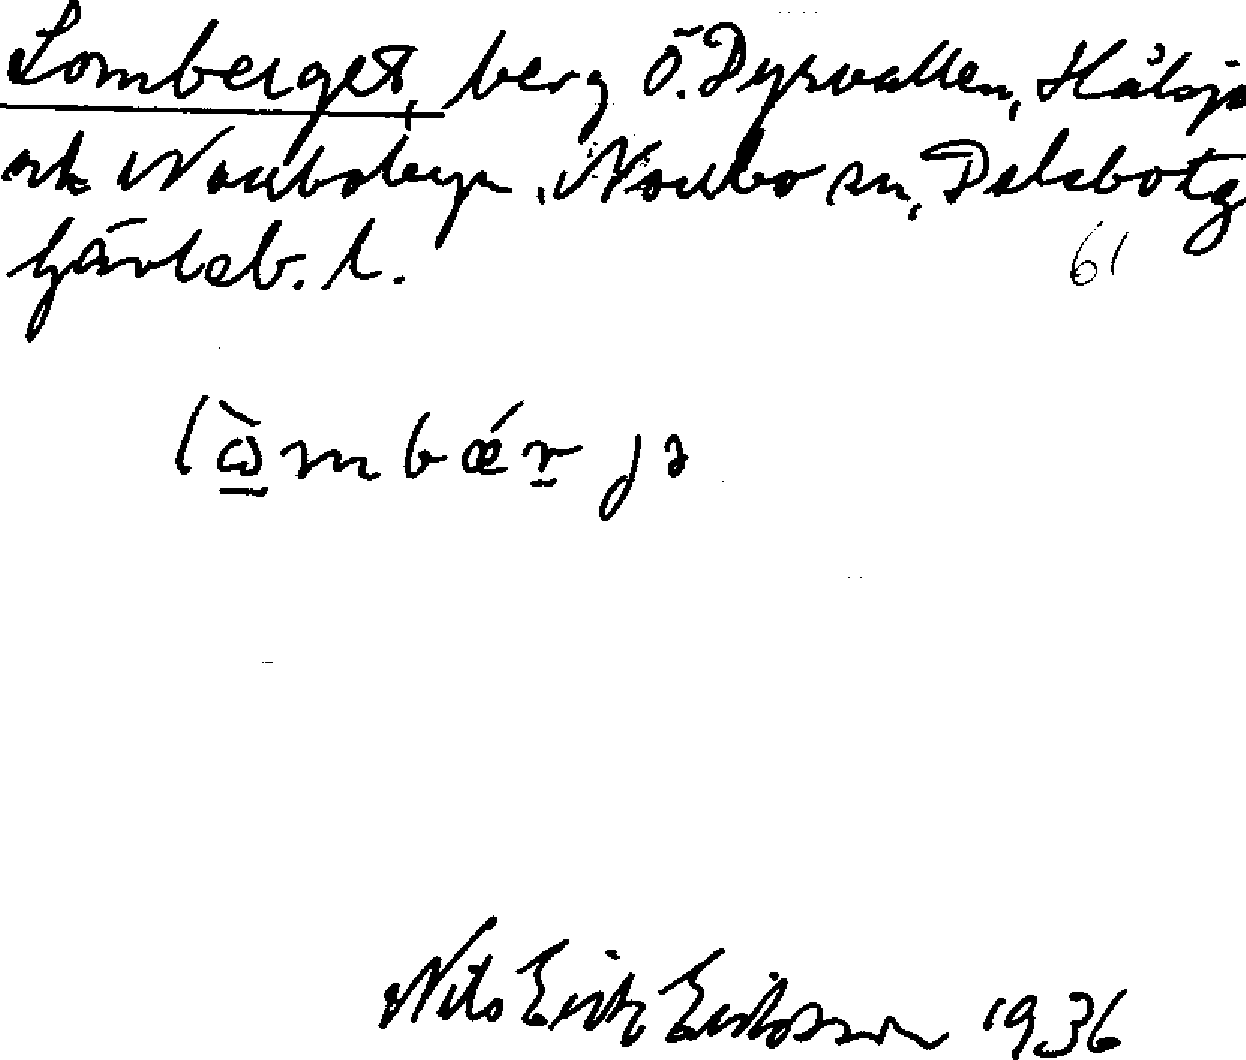 Lomberget, berg Ö. Dyrvallen, Hålsjö
sk Norrbobyn, Norrbo sn, Delsbo tg
Gävleb. l.
61
lòmbǽrjə
Nils Erik Eriksson 1936